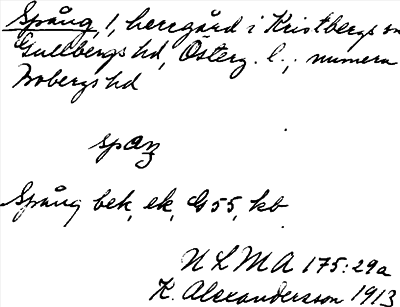 Spång, 1, herrgård i Kristbergs sn
Gullbergs hd, Österg. l.; numera
Bobergs hd
spaŋ
Spång bek, ek, G55, kb
ULMA 175:29a
K. Alexandersson 1913